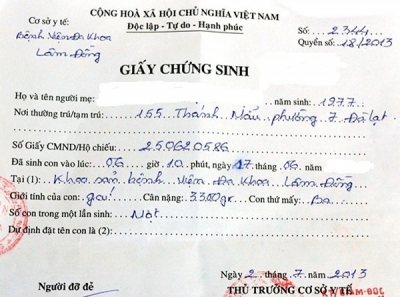 CỘNG HOÀ XÃ HỘI CHỦ NGHĨA VIỆT NAM
Độc lập - Tự do - Hạnh phúc
Cơ sở y tế:
Bệnh Viện Đa Khoa
Lâm Đồng
Số: 2344
Quyển số: 18/2013
GIẤY CHỨNG SINH
Họ và tên người mẹ: năm sinh: 1977
Nơi thường trú/tạm trú: 155 Thánh Mẫu, phường 7 Đà lạt
Số Giấy CMND/Hộ chiếu: 250620586
Đã sinh con vào lúc: 06 giờ 10 phút, ngày 17 tháng 06 năm
Tại (1): Khoa sản bệnh viện Đa Khoa Lâm Đồng
Giới tính của con: Cân nặng: 3300gr Con thứ mấy: Ba
Số con trong một lần sinh: Một
Dự định đặt tên con là (2):
Ngày 2 tháng 7 năm 2013
Người đỡ đẻ
THỦ TRƯỞNG CƠ SỞ Y TẾ